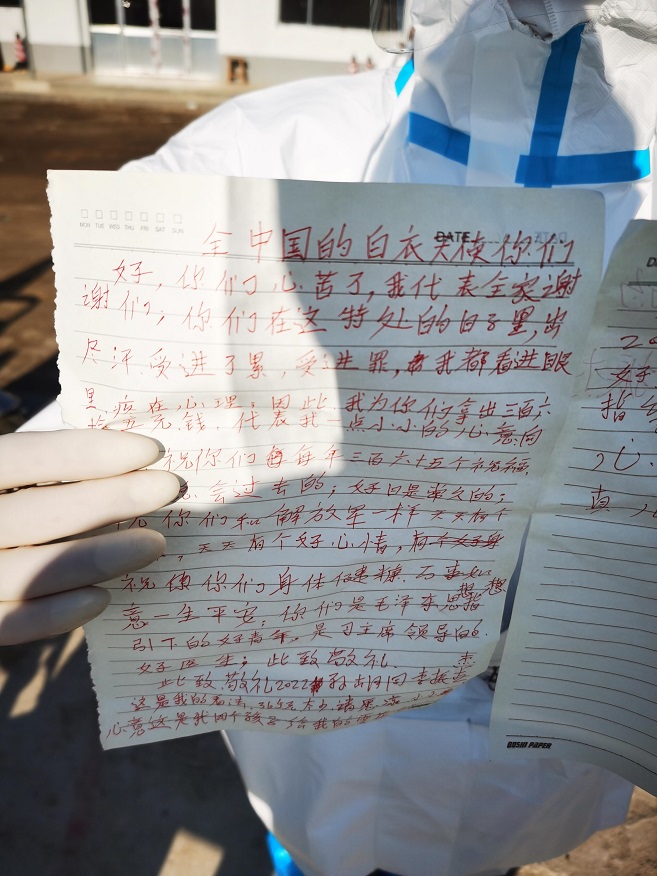 MON TUE WED THU FRI SAT SUN
DATE
全中国的白衣天使你们
好，你们心苦了，我代表全家谢
谢们；你们在这特处的日子里，出
尽汗，受进了累，受进罪，我都看进眼
里，疼在心理，因此，我为你们拿出三百六
拾五元钱，代表我一点小小的心意向
祝你们每每年三百六十五个祝福
会过去的；好日是常久的；
你们和解放军一样天天有个
，天天有个好心情，有个好身
祝你们身体健康，万事如
意一生平安；你们是毛泽东思想
引下的好青年，是习主席领导的
好医生；此致敬礼
此致敬礼2022
这是我的
心意这是我四个孩子给我的
20
好
指
心
真
DOSHI PAPER